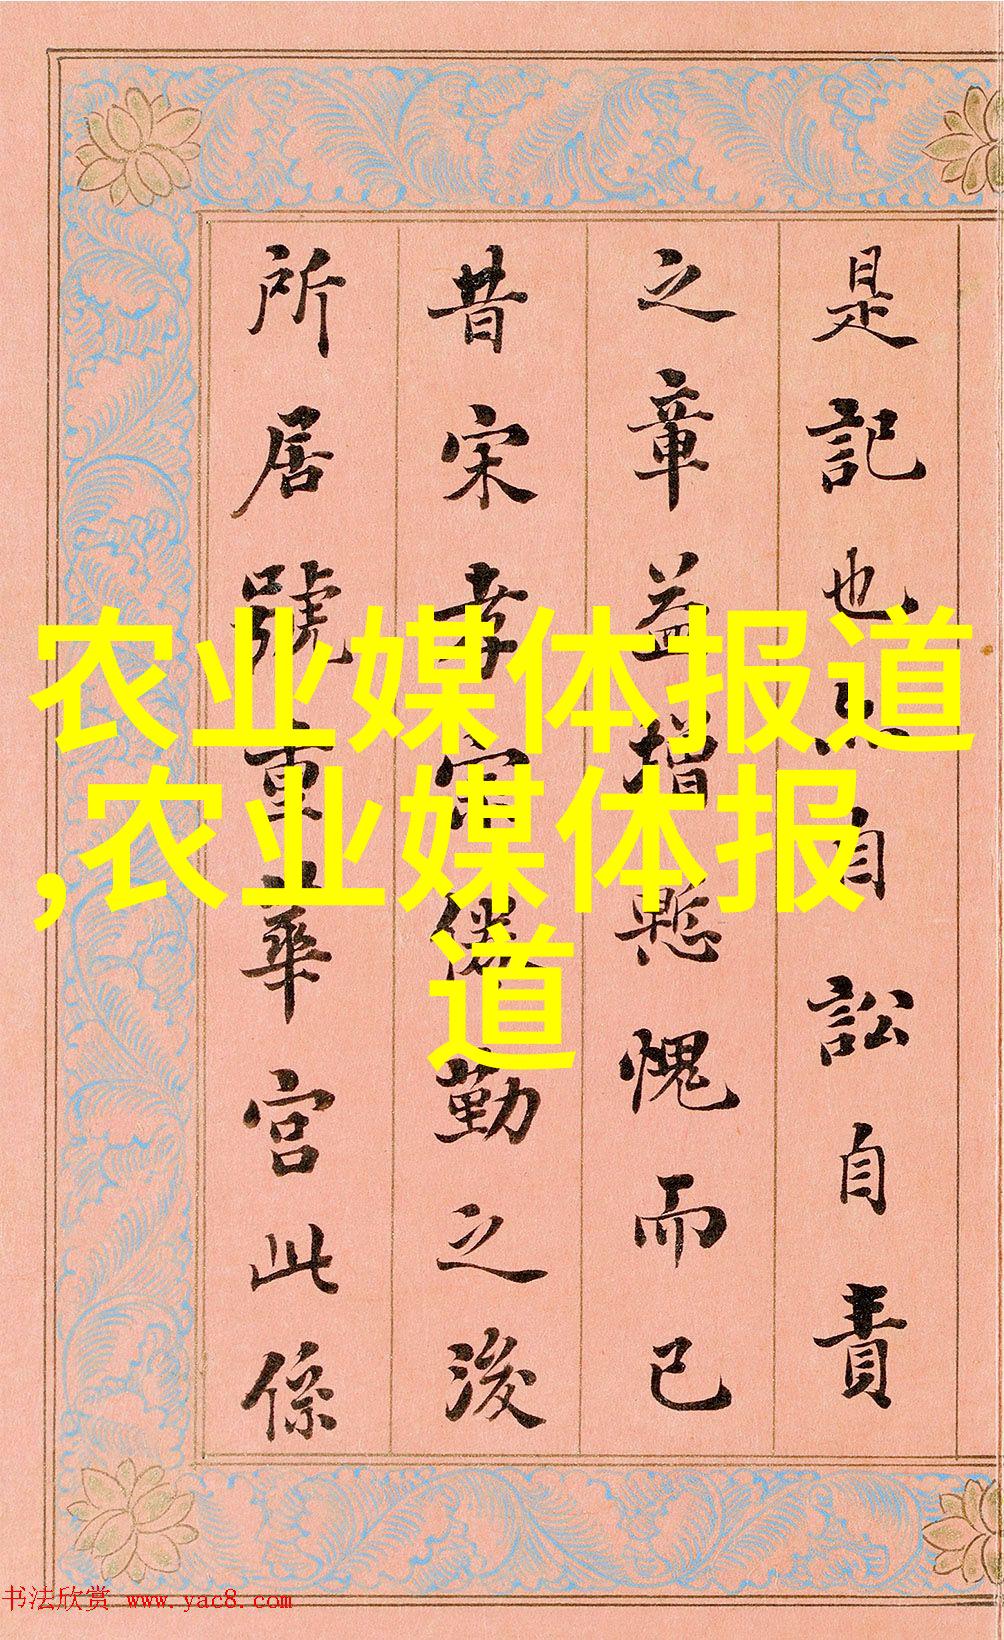 是記也 自訟自責
之章益增慙愧而已
昔宋孝宗倦勤之後
所居號重華宮此係
农业媒体报道
,农业媒体报
道
书法欣赏 www.yac8.com